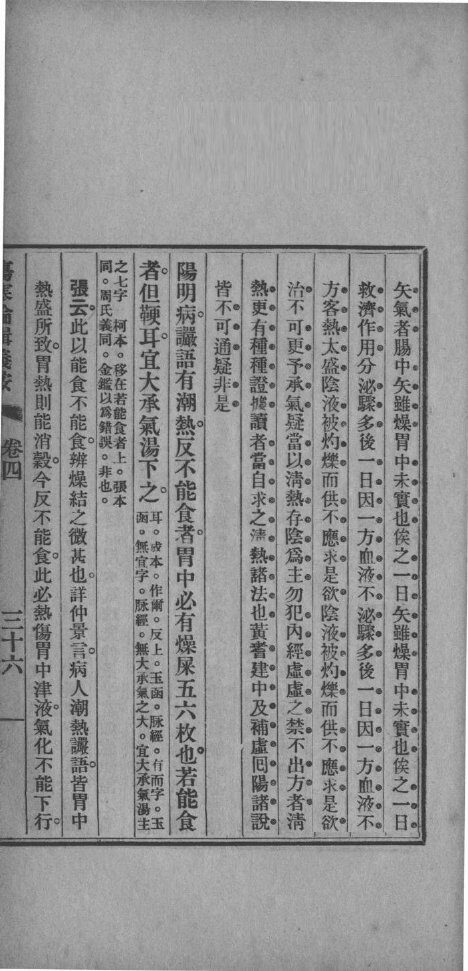 矢氣者腸中矢雖燥胃中未實也俟之一日矢雖燥胃中未實也俟之一日
救濟作用分泌驟多後一日因一方血液不泌驟多後一日因一方血液不
方客熱太盛陰液被灼爍而供不應求是欲陰液被灼爍而供不應求是欲
治不可更予承氣疑當以清熱存陰爲主勿犯內經虛虛之禁不出方者清
熱更有種種證據讀者當自求之清熱諸法也黃耆建中及補虛回陽諸說
皆不可通疑非是
陽明病讝語有潮熱。反不能食者。胃中必有燥屎五六枚也。若能食
者。但鞕耳。宜大承氣湯下之。耳。成本。作爾。反上。玉函。脉經。有而字。玉函。無宜字。脉經。無大承氣之大。宜大承氣湯主
之七字　柯本。移在若能食者上。張本同。周氏義同。金鑑以爲錯誤。非也。
張云。此以能食不能食。辨燥結之微甚也。詳仲景言。病人潮熱讝語。皆胃中
熱盛所致。胃熱則能消穀。今反不能食。此必熱傷胃中津液。氣化不能下行。
傷寒論輯義按　卷四　三十六